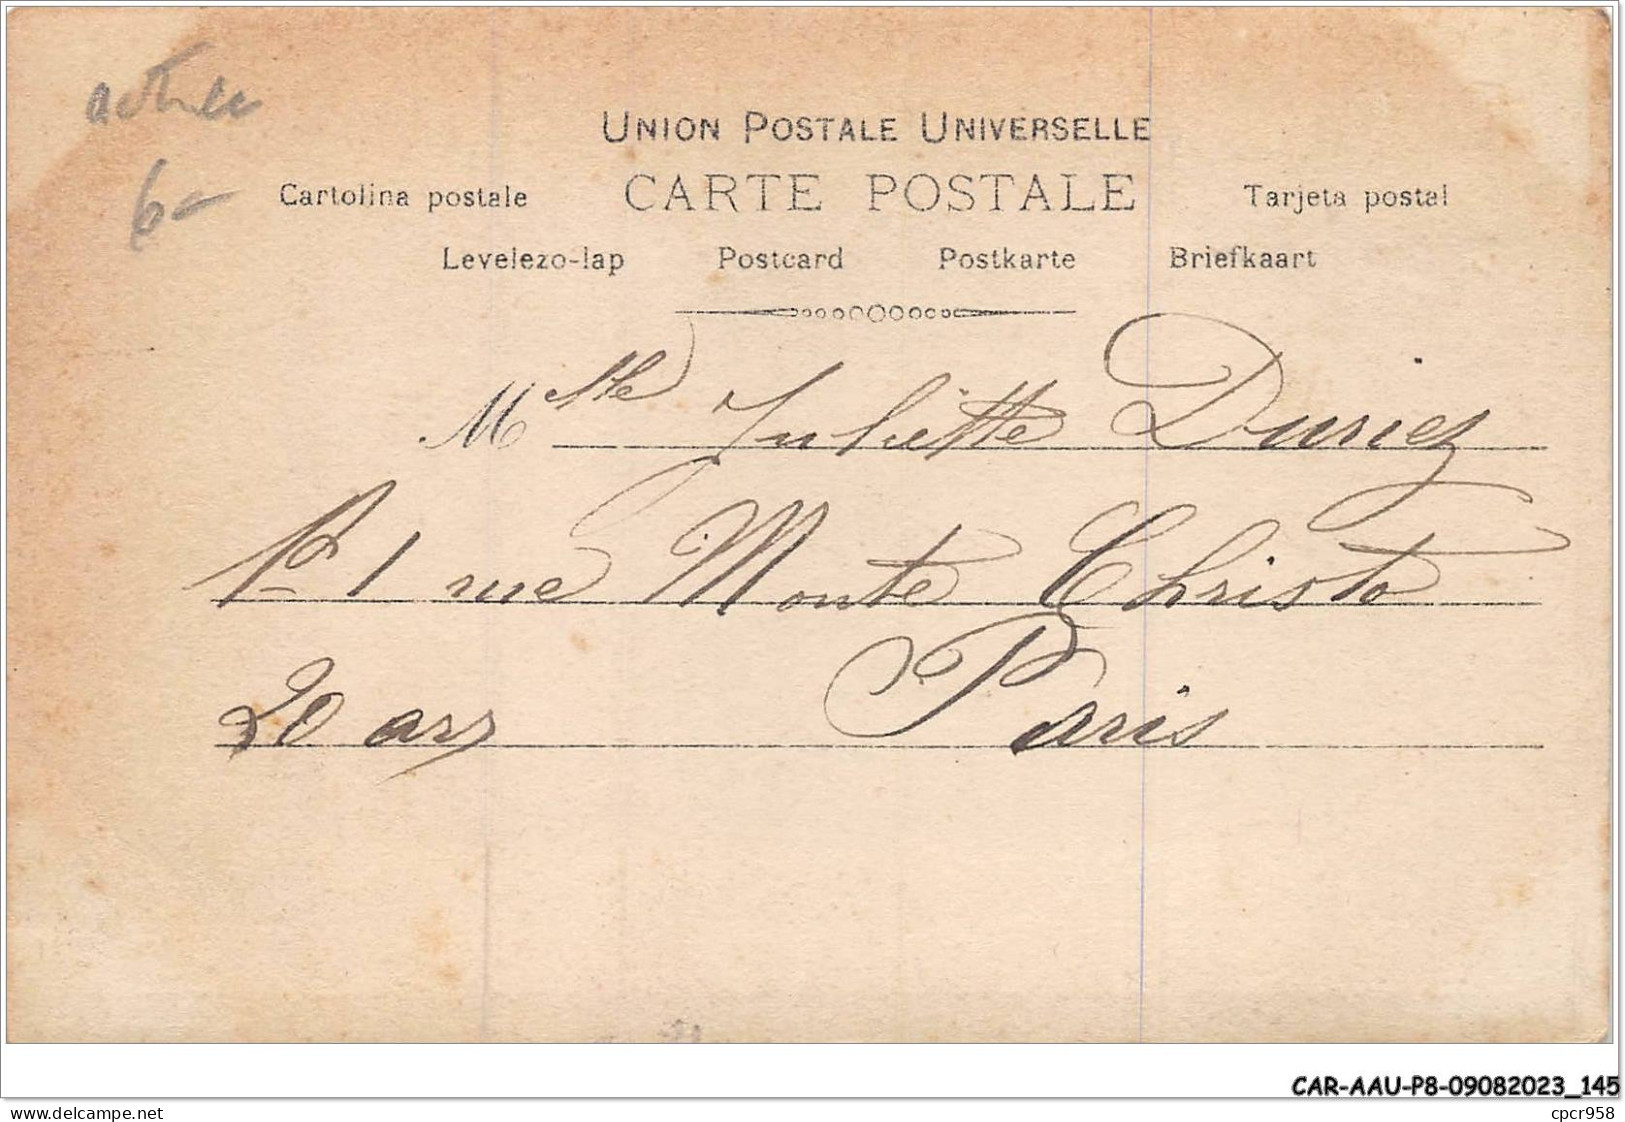 6-
UNION POSTALE UNIVERSELLE
Cartolina postale CARTE POSTALE Tarjeta postal
Levelezo-lap Postcard Postkarte Briefkaart
Mlle Juliette Duriez
1 rue Monte Christo
20 arr Paris
CAR-AAU-P8-09082023_145
www.delcampe.net cpcr958